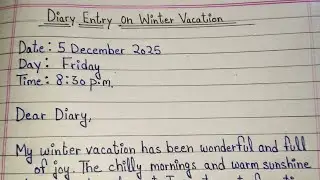 Diary Entry on Winter Vacation
Date: 5 December 2025
Day: Friday
Time: 8:30 p.m.
Dear Diary,
My winter vacation has been wonderful and full
of joy. The chilly mornings and warm sunshine